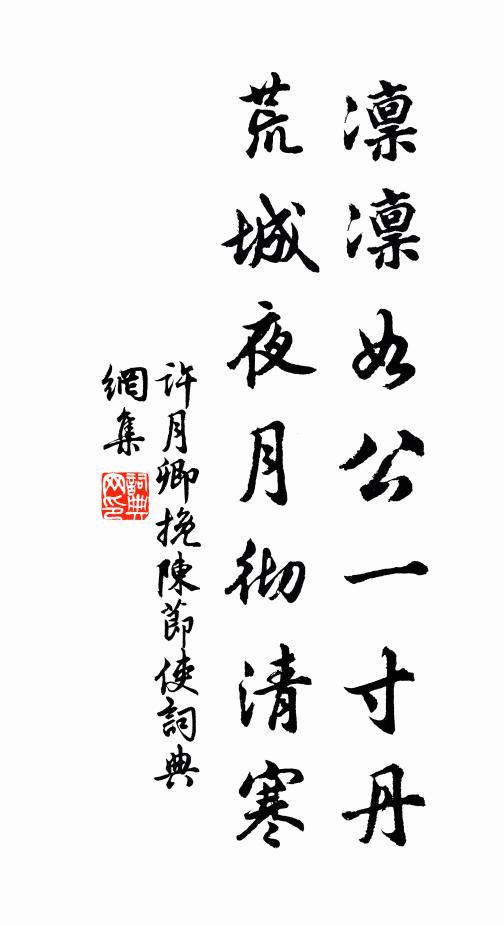 凛凛如公一寸丹
荒城夜月彻清寒
許月卿挽陳節使詞典
網集
詞典
网印